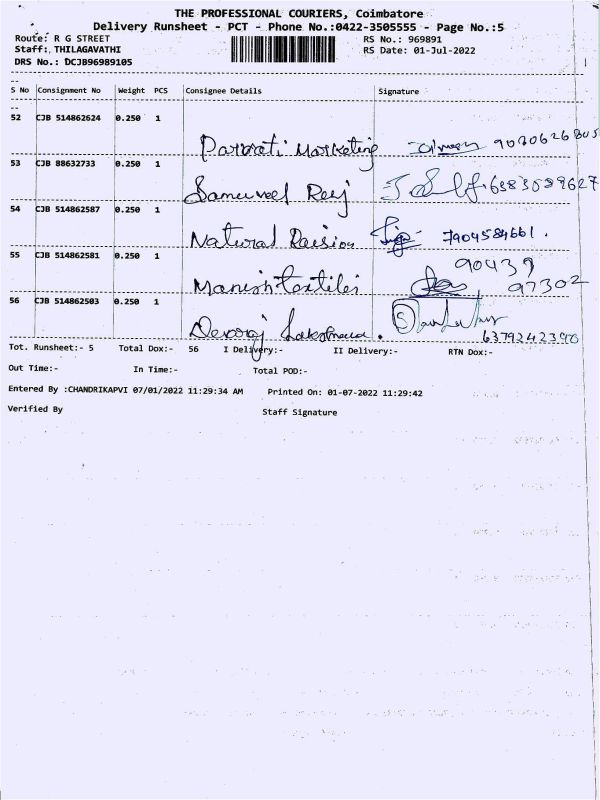 THE PROFESSIONAL COURIERS, Coimbatore
Delivery Runsheet - PCT - Phone No.:0422-3505555 - Page No.:5
Route: R G STREET RS No.: 969891
Staff: THILAGAVATHI RS Date: 01-Jul-2022
DRS No.: DCJB96989105
S No Consignment No Weight PCS Consignee Details Signature
52 CJB 514862624 0.250 1
Parvati Marketing
53 CJB 88632733 0.250 1
Samuvel Raj 6383089627
54 CJB 514862587 0.250 1
Natural Raision 7904584661.
55 CJB 514862581 0.250 1 90439
Manish textiles 97302
56 CJB 514862503 0.250 1
Devaraj
Tot. Runsheet:- 5 Total Dox:- 56 I Delivery:- II Delivery:- RTN Dox:-
Out Time:- In Time:- Total POD:-
Entered By :CHANDRIKAPVI 07/01/2022 11:29:34 AM Printed On: 01-07-2022 11:29:42
Verified By Staff Signature